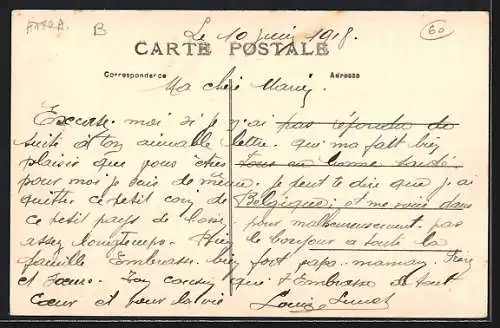 B
60
Le 10 juin 1918.
CARTE POSTALE
Correspondance
Adresse
Ma chère
Excuse moi si je n'ai pas répondu de
suite à ton aimable lettre. qui ma fait bien
plaisir que vous êtes tous en bonne santé.
pour moi je suis de même, je peut te dire que j ai
quitter ce petit coin de Belgique, et me voici dans
ce petit pays de pour malheureusement pas
assez longtemps. le bonjour a toute la
famille Embrasse bien fort papa. maman, Frère
et Sœurs. Ton cousin qui t Embrasse de tout
Cœur et pour la vie Louis